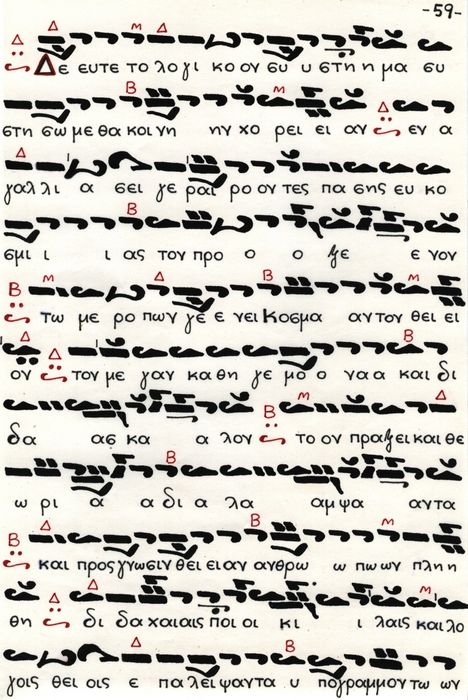 -59-
Δε ευτε το λο γι κο ον συ υ στη η μα συ
στη σω με θα κοι νη ην χο ρει ει αν εν α
γαλ λι α σει γε ραι ρο ον τες πα σης ευ κο
σμι ι ι ας τον προ ο ο ξε ε νον
τω με ρο πων γε ε νει Κοσμα αν τον θει ει
ον τον με γαν κα θη γε μο ο να α και δι
δα ασ κα α λον το ον πραξει και θε
ω ρι α α δι α λα αμ ψα αντα
και προς γνωσιν θει ει αν ανθρω ω πω ων πλη η
θη δι δα χαι αις ποι οι κι ι λαις και λο
γοις θει οις ε πα λει ψαντα υ πογραμμον τω ων